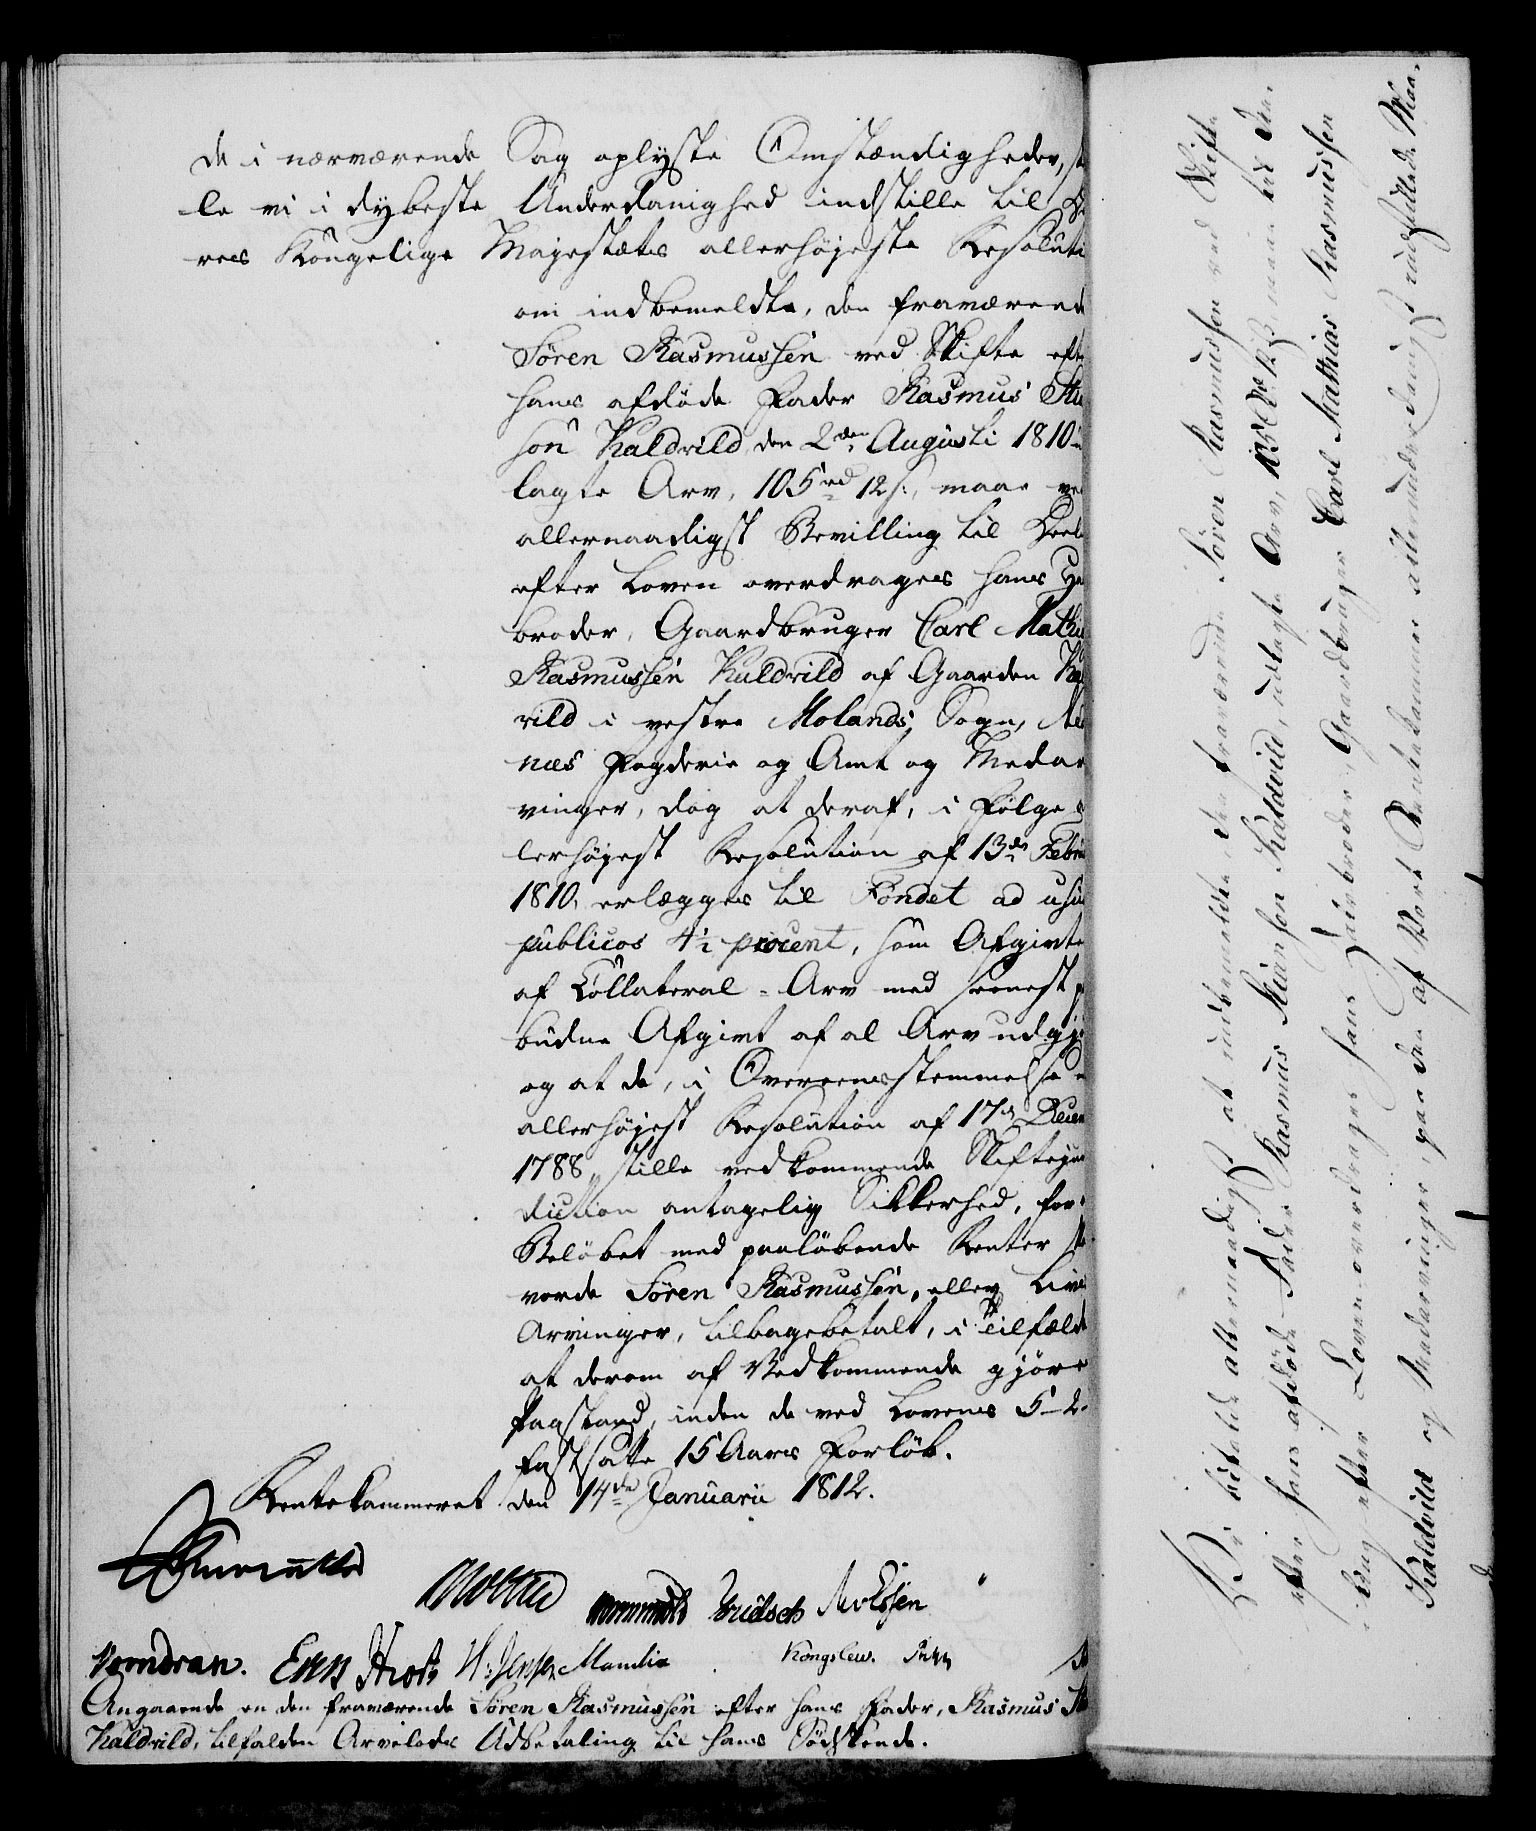 de i nærværende Sag oplyste Omstændigheder,
le vi i dybeste Underdanighed indstille til
res Kongelige Majestæts allerhøjeste Resoluti
om indbemeldte, den fraværende
Sören Rasmussen ved Skifte eft
hans afdøde Fader Rasmus
sön Kaldvild den 2den Augusti 1810
lagte Arv, 105 rd 12 s:, maae ve
allernaadigst Bevilling til Deel
efter Loven overdrages hans
broder, Gaardbruger Carl Mathi
Rasmussen Kaldvild af Gaarden Ka
vild i vestre Molands Sogn, Ned
næs Fogderie og Amt og Medar
vinger, dog at deraf, i Følge
lerhøjest Resolution af 13de Febru
1810, erlægges til Fondet ad usus
publicos 4½ procent, som Afgivt
af Collateral-Arv med seenest
budne Afgivt af al Arv udgjø
og at de, i Overeensstemmelse
allerhøjest Resolution af 17de Decem
1788, stille vedkommende Skiftejuris
diction antagelig Sikkerhed, for
Beløbet med paaløbende Renter
vorde Sören Rasmussen, eller Livs
Arvinger, tilbagebetalt, i Tilfælde
at derom af Vedkommende gjøres
Paastand, inden de ved Lovens 5-2-
fastsatte 15 Aars Forløb.
Rentekammeret den 14de Januarii 1812.
Knudsen
Vomdran.
H: Jensen
Kongslew.
Angaaende en den fraværende Sören Rasmussen efter hans Fader, Rasmus
Kaldvild, tilfalden Arvelods Udbetaling til hans Södskende.
Vi bifalde allernaadigst at indbemeldte, den fraværende Sören Rasmussen ved Skifte
efter hans afdöde Fader Rasmus Stiansen Kaldvild, udlagte Arv, 105 Rd 12 s, maae til Dee-
ling efter Loven overdrages hans Halvbroder, Gaardbruger Carl Mathias Rasmussen
Kaldvild og Medarvinger, paa den af Vort Rentekammer allerunderdanigst indstillede Maa-